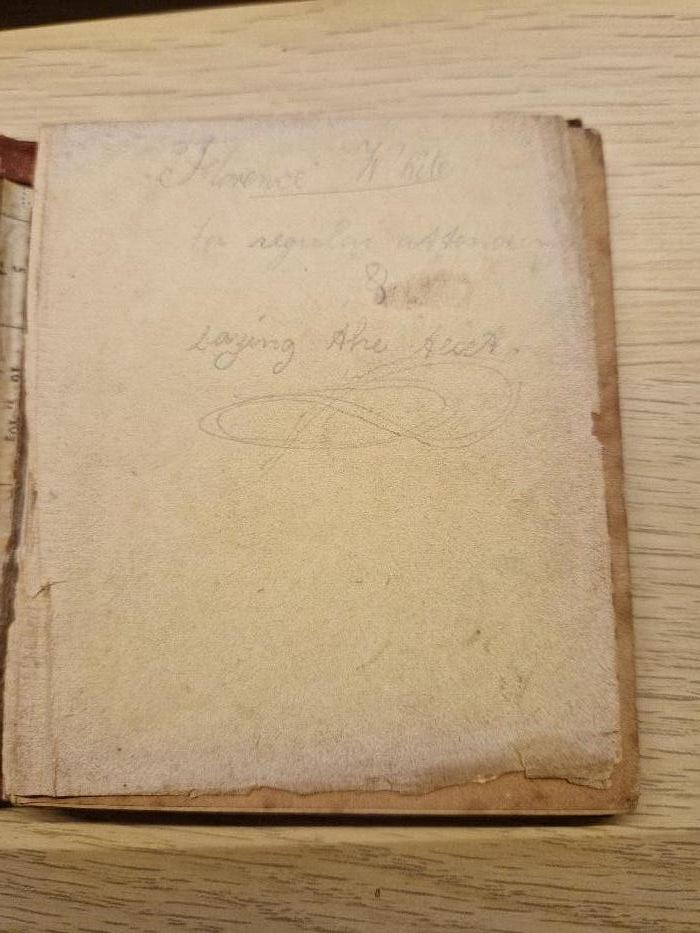 Florence White
for regular attendance
&
saying the text.